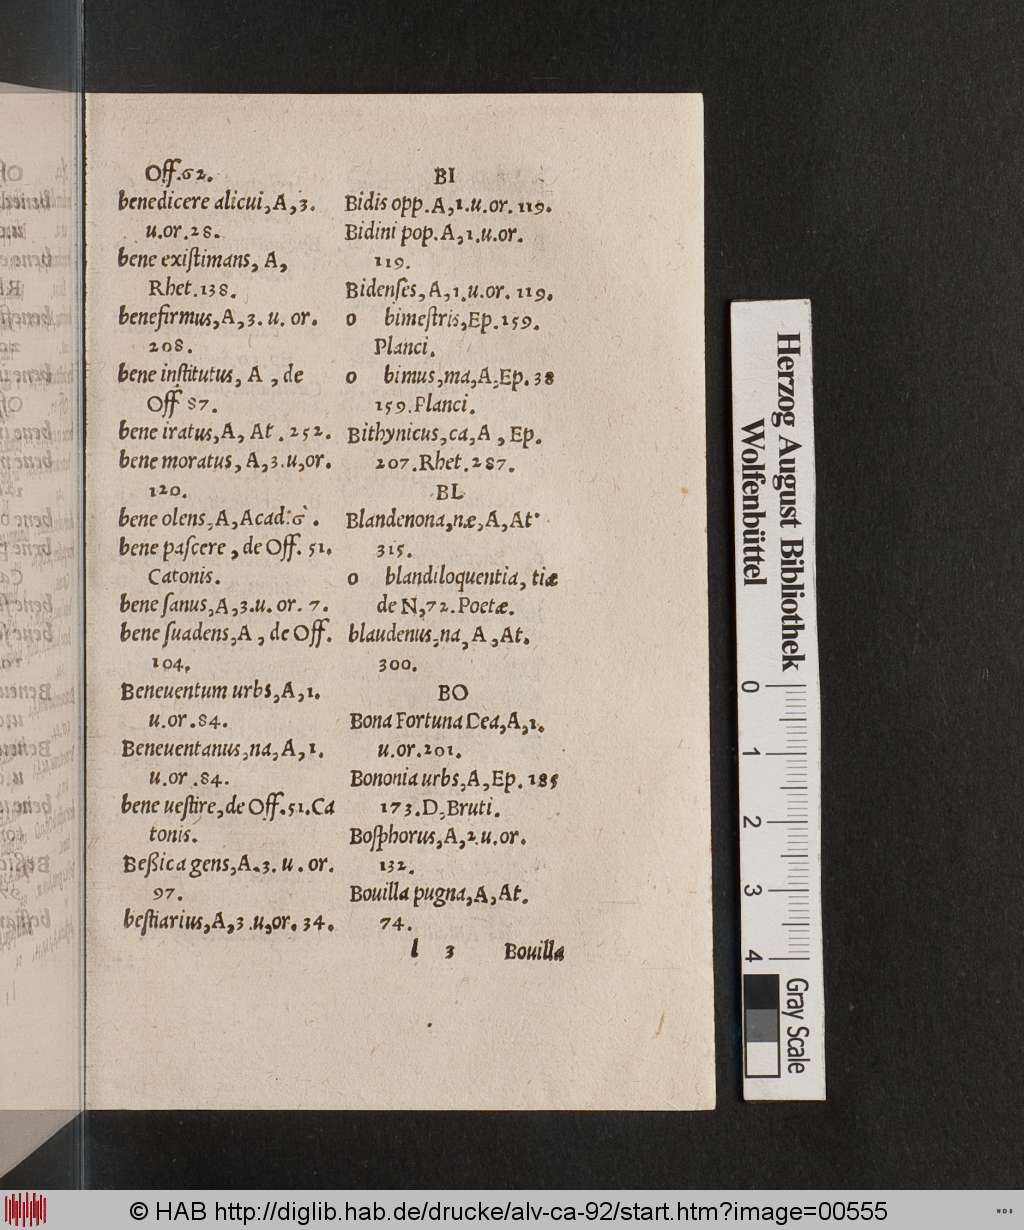 Off.62.
benedicere alicui, A, 3.
u.or.28.
bene existimans, A,
Rhet.138.
benefirmus, A, 3. u. or.
208.
bene institutus, A, de
Off 87.
bene iratus, A, At. 252.
bene moratus, A, 3.u,or.
120.
bene olens, A, Acad. 6.
bene pascere, de Off. 51.
Catonis.
bene sanus, A, 3.u. or. 7.
bene suadens, A, de Off.
104.
Beneuentum urbs, A, 1.
u.or.84.
Beneuentanus, na, A, 1.
u.or.84.
bene uestire, de Off.51.Ca
tonis.
Beßica gens, A.3. u. or.
97.
bestiarius, A, 3.u,or. 34.
BI
Bidis opp. A, 1.u.or. 119.
Bidini pop. A, 1.u.or.
119.
Bidenses, A, 1.u.or. 119.
o bimestris, Ep.159.
Planci.
o bimus, ma, A, Ep. 38
159. Planci.
Bithynicus, ca, A, Ep.
207. Rhet.287.
BL
Blandenona, næ, A, At.
315.
o blandiloquentia, tiæ
de N, 72. Poetæ.
blaudenus, na, A, At.
300.
BO
Bona Fortuna Dea, A, 1.
u.or.201.
Bononia urbs, A, Ep. 185
173. D, Bruti.
Bosphorus, A, 2.u.or.
132.
Bouilla pugna, A, At.
74.
l 3 Bouilla
Herzog August Bibliothek
Wolfenbüttel
0 1 2 3 4
Gray Scale
© HAB http://diglib.hab.de/drucke/alv-ca-92/start.htm?image=00555